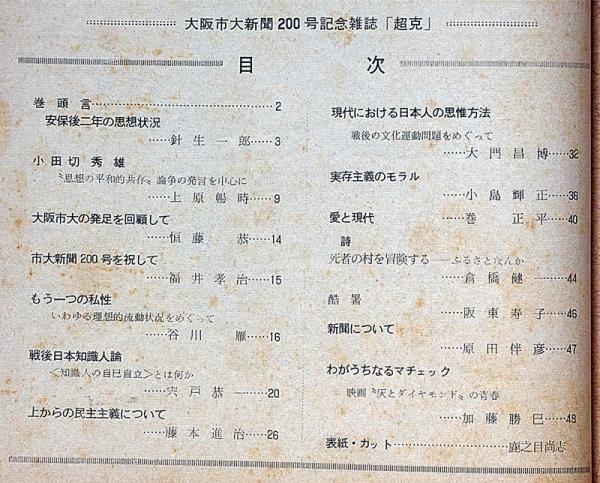 大阪市大新聞200号記念雑誌「超克」
目次
巻頭言……2
安保後二年の思想状況
……針生一郎……3
小田切秀雄
〝思想の平和的共存〟論争の発言を中心に
……上原暢時……9
大阪市大の発足を回顧して
……恒藤恭……14
市大新聞200号を祝して
……福井孝治……15
もう一つの私性
いわゆる理想的流動状況をめぐって
……谷川雁……16
戦後日本知識人論
<知識人の自己自立>とは何か
……宍戸恭一……20
上からの民主主義について
……藤本進治……26
現代における日本人の思惟方法
戦後の文化運動問題をめぐって
……大門昌博……32
実存主義のモラル
……小島輝正……36
愛と現代……巻正平……40
詩
死者の村を冒険する――ふるさとなんか
……倉橋健一……44
酷暑
……阪東寿子……46
新聞について
……原田伴彦……47
わがうちなるマチェック
映画〝灰とダイヤモンド〟の青春
……加藤勝巳……48
表紙・カット……鹿之目尚志